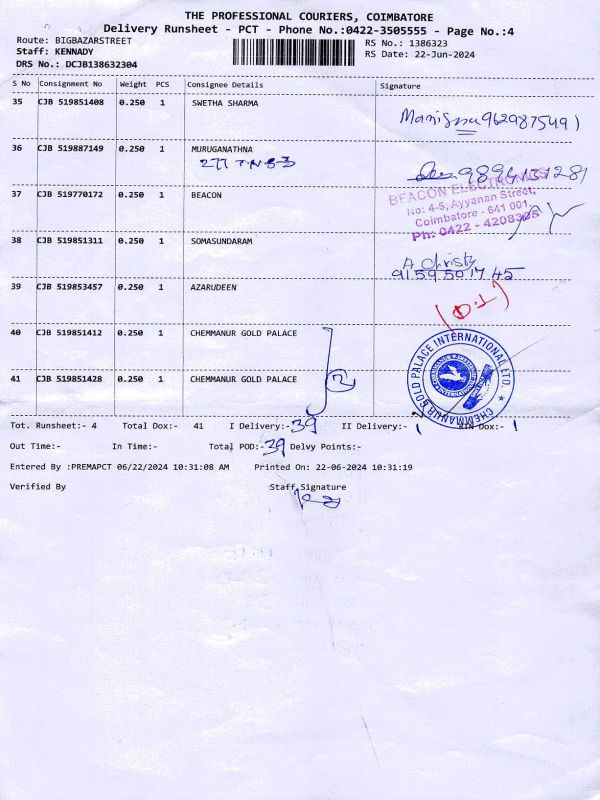 THE PROFESSIONAL COURIERS, COIMBATORE
Delivery Runsheet - PCT - Phone No.:0422-3505555 - Page No.:4
Route: BIGBAZARSTREET
RS No.: 1386323
Staff: KENNADY
RS Date: 22-Jun-2024
DRS No.: DCJB138632304
S No Consignment No Weight PCS Consignee Details Signature
35 CJB 519851408 0.250 1 SWETHA SHARMA
9629875491
36 CJB 519887149 0.250 1 MURUGANATHNA
277
37 CJB 519770172 0.250 1 BEACON
BEACON ELECTRONICS
No: 4-5, Ayyanan Street,
Coimbatore - 641 001.
Ph: 0422 - 4208305
38 CJB 519851311 0.250 1 SOMASUNDARAM
A Christy
9159501745
39 CJB 519853457 0.250 1 AZARUDEEN
40 CJB 519851412 0.250 1 CHEMMANUR GOLD PALACE
41 CJB 519851428 0.250 1 CHEMMANUR GOLD PALACE
2
CHEMMANUR GOLD PALACE INTERNATIONAL LTD.
Tot. Runsheet:- 4 Total Dox:- 41 I Delivery:-39 II Delivery:- Dox:- 1
Out Time:- In Time:- Total POD:-39 Delvy Points:-
Entered By :PREMAPCT 06/22/2024 10:31:08 AM Printed On: 22-06-2024 10:31:19
Verified By Staff Signature